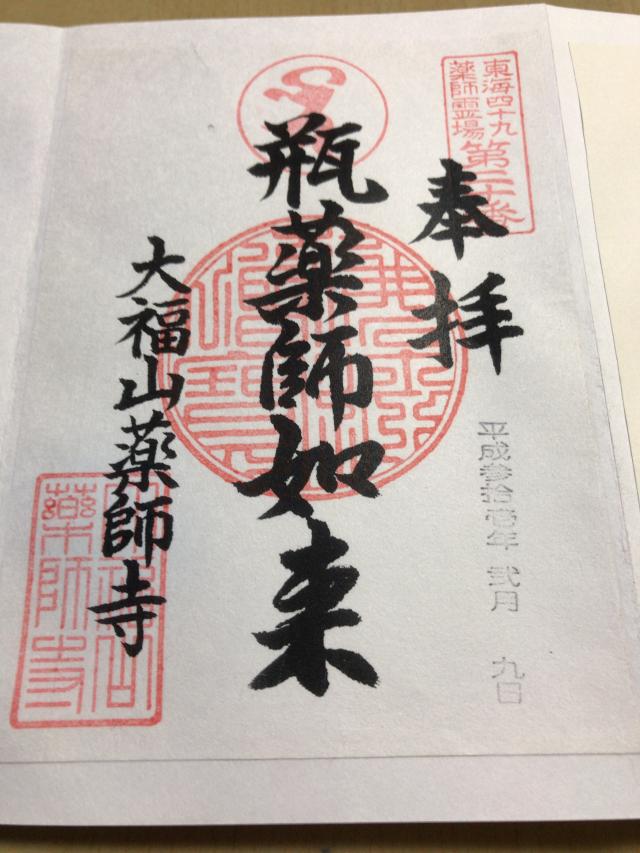 東海四十九
薬師霊場
第二十番
奉拝
平成参拾壱年 弐月 九日
瓶薬師如来
大福山薬師寺
薬師寺